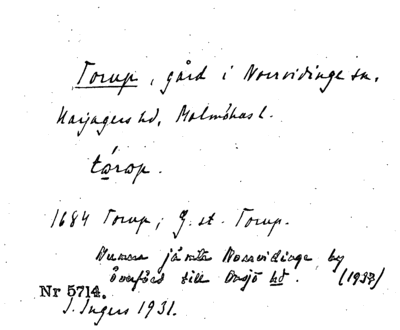 Torup, gård i Norrvidinge sn,
Harjagers hd, Malmöhus l.
tórɷp.
1684 Torup; G. st. Torup.
Norrvidinge by
överförd till Onsjö hd. (1937)
Nr 5714.
I. Ingers 1931.